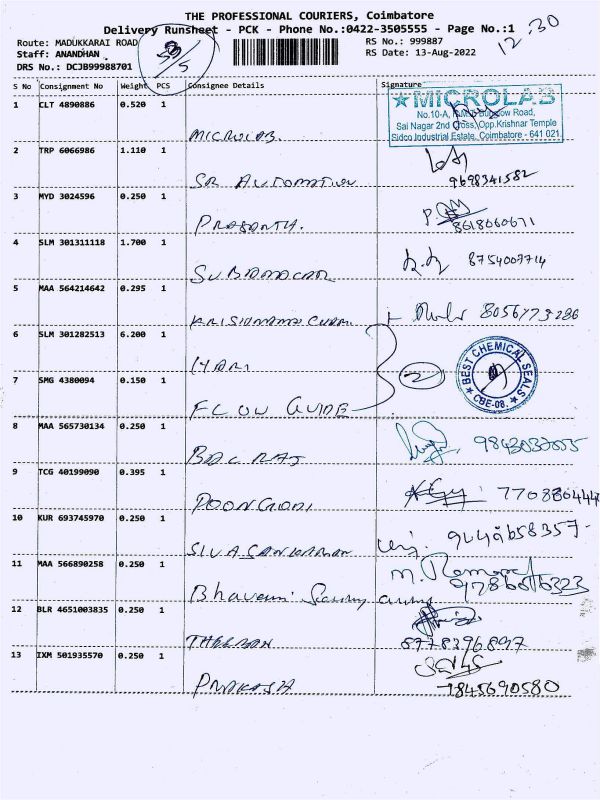 THE PROFESSIONAL COURIERS, Coimbatore
Delivery Runsheet - PCK - Phone No.:0422-3505555 - Page No.:1
12.30
Route: MADUKKARAI ROAD
RS No.: 999887
Staff: ANANDHAN
RS Date: 13-Aug-2022
DRS No.: DCJB99988701
53/5
S No Consignment No Weight PCS Consignee Details Signature
1 CLT 4890886 0.520 1
MICROLAB
★MICROLAB
No.10-A, Road,
Sai Nagar 2nd Cross, Opp.Krishnar Temple
Sidco Industrial Estate, Coimbatore - 641 021.
2 TRP 6066986 1.110 1
SR AUTOMATION 9698341582
3 MYD 3024596 0.250 1
PRASANTH. 8618060671
4 SLM 301311118 1.700 1
8754007714
5 MAA 564214642 0.295 1
8056773286
6 SLM 301282513 6.200 1
HARI
2
BEST CHEMICAL SEALS
★ CBE-08. ★
7 SMG 4380094 0.150 1
FLOW GUIDE
8 MAA 565730134 0.250 1
BALRAJ
9 TCG 40199090 0.395 1
7708804448
10 KUR 693745970 0.250 1
SIVASANKARAN
11 MAA 566890258 0.250 1
Bhavani
12 BLR 4651003835 0.250 1
8778296897
13 IXM 501935570 0.250 1
PRAKASH 7845690580